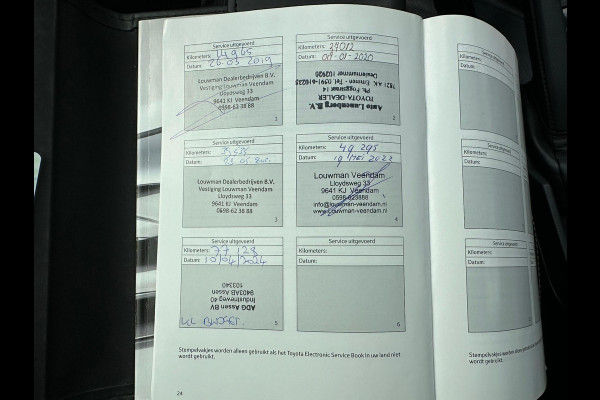 Service uitgevoerd
Kilometers: 14965
Datum: 26-03-2019
Louwman Dealerbedrijven B.V.
Vestiging Louwman Veendam
Lloydsweg 33
9641 KJ Veendam
0598-62 38 88
1
Service uitgevoerd
Kilometers: 24012
Datum: 04-01-2020
Auto Lunenberg B.V.
TOYOTA-DEALER
Ph. Foggstraat 14
7821 AK Emmen - Tel. 0591-610235
Dealernummer
2
Service uitgevoerd
Kilometers:
Datum:
Louwman Dealerbedrijven B.V.
Vestiging Louwman Veendam
Lloydsweg 33
9641 KJ Veendam
0598-62 38 88
3
Service uitgevoerd
Kilometers: 49 295
Datum: 19 MEI 2022
Louwman Veendam
Lloydsweg 33
9641 KJ Veendam
0598-623888
info@louwman-veendam.nl
www.Louwman-veendam.nl
4
Service uitgevoerd
Kilometers: 77 128
Datum: 10/04/2024
ADG Assen BV
Industrieweg 40
9403AB Assen
103340
5
Service uitgevoerd
Kilometers:
Datum:
6
Stempelvakjes worden alleen gebruikt als het Toyota Electronic Service Book in uw land niet
wordt gebruikt.
24
Kilometers:
Datum:
Kilometers:
Datum:
Kilometers:
Datum:
Stempelvakjes worden alleen
wordt gebruikt.